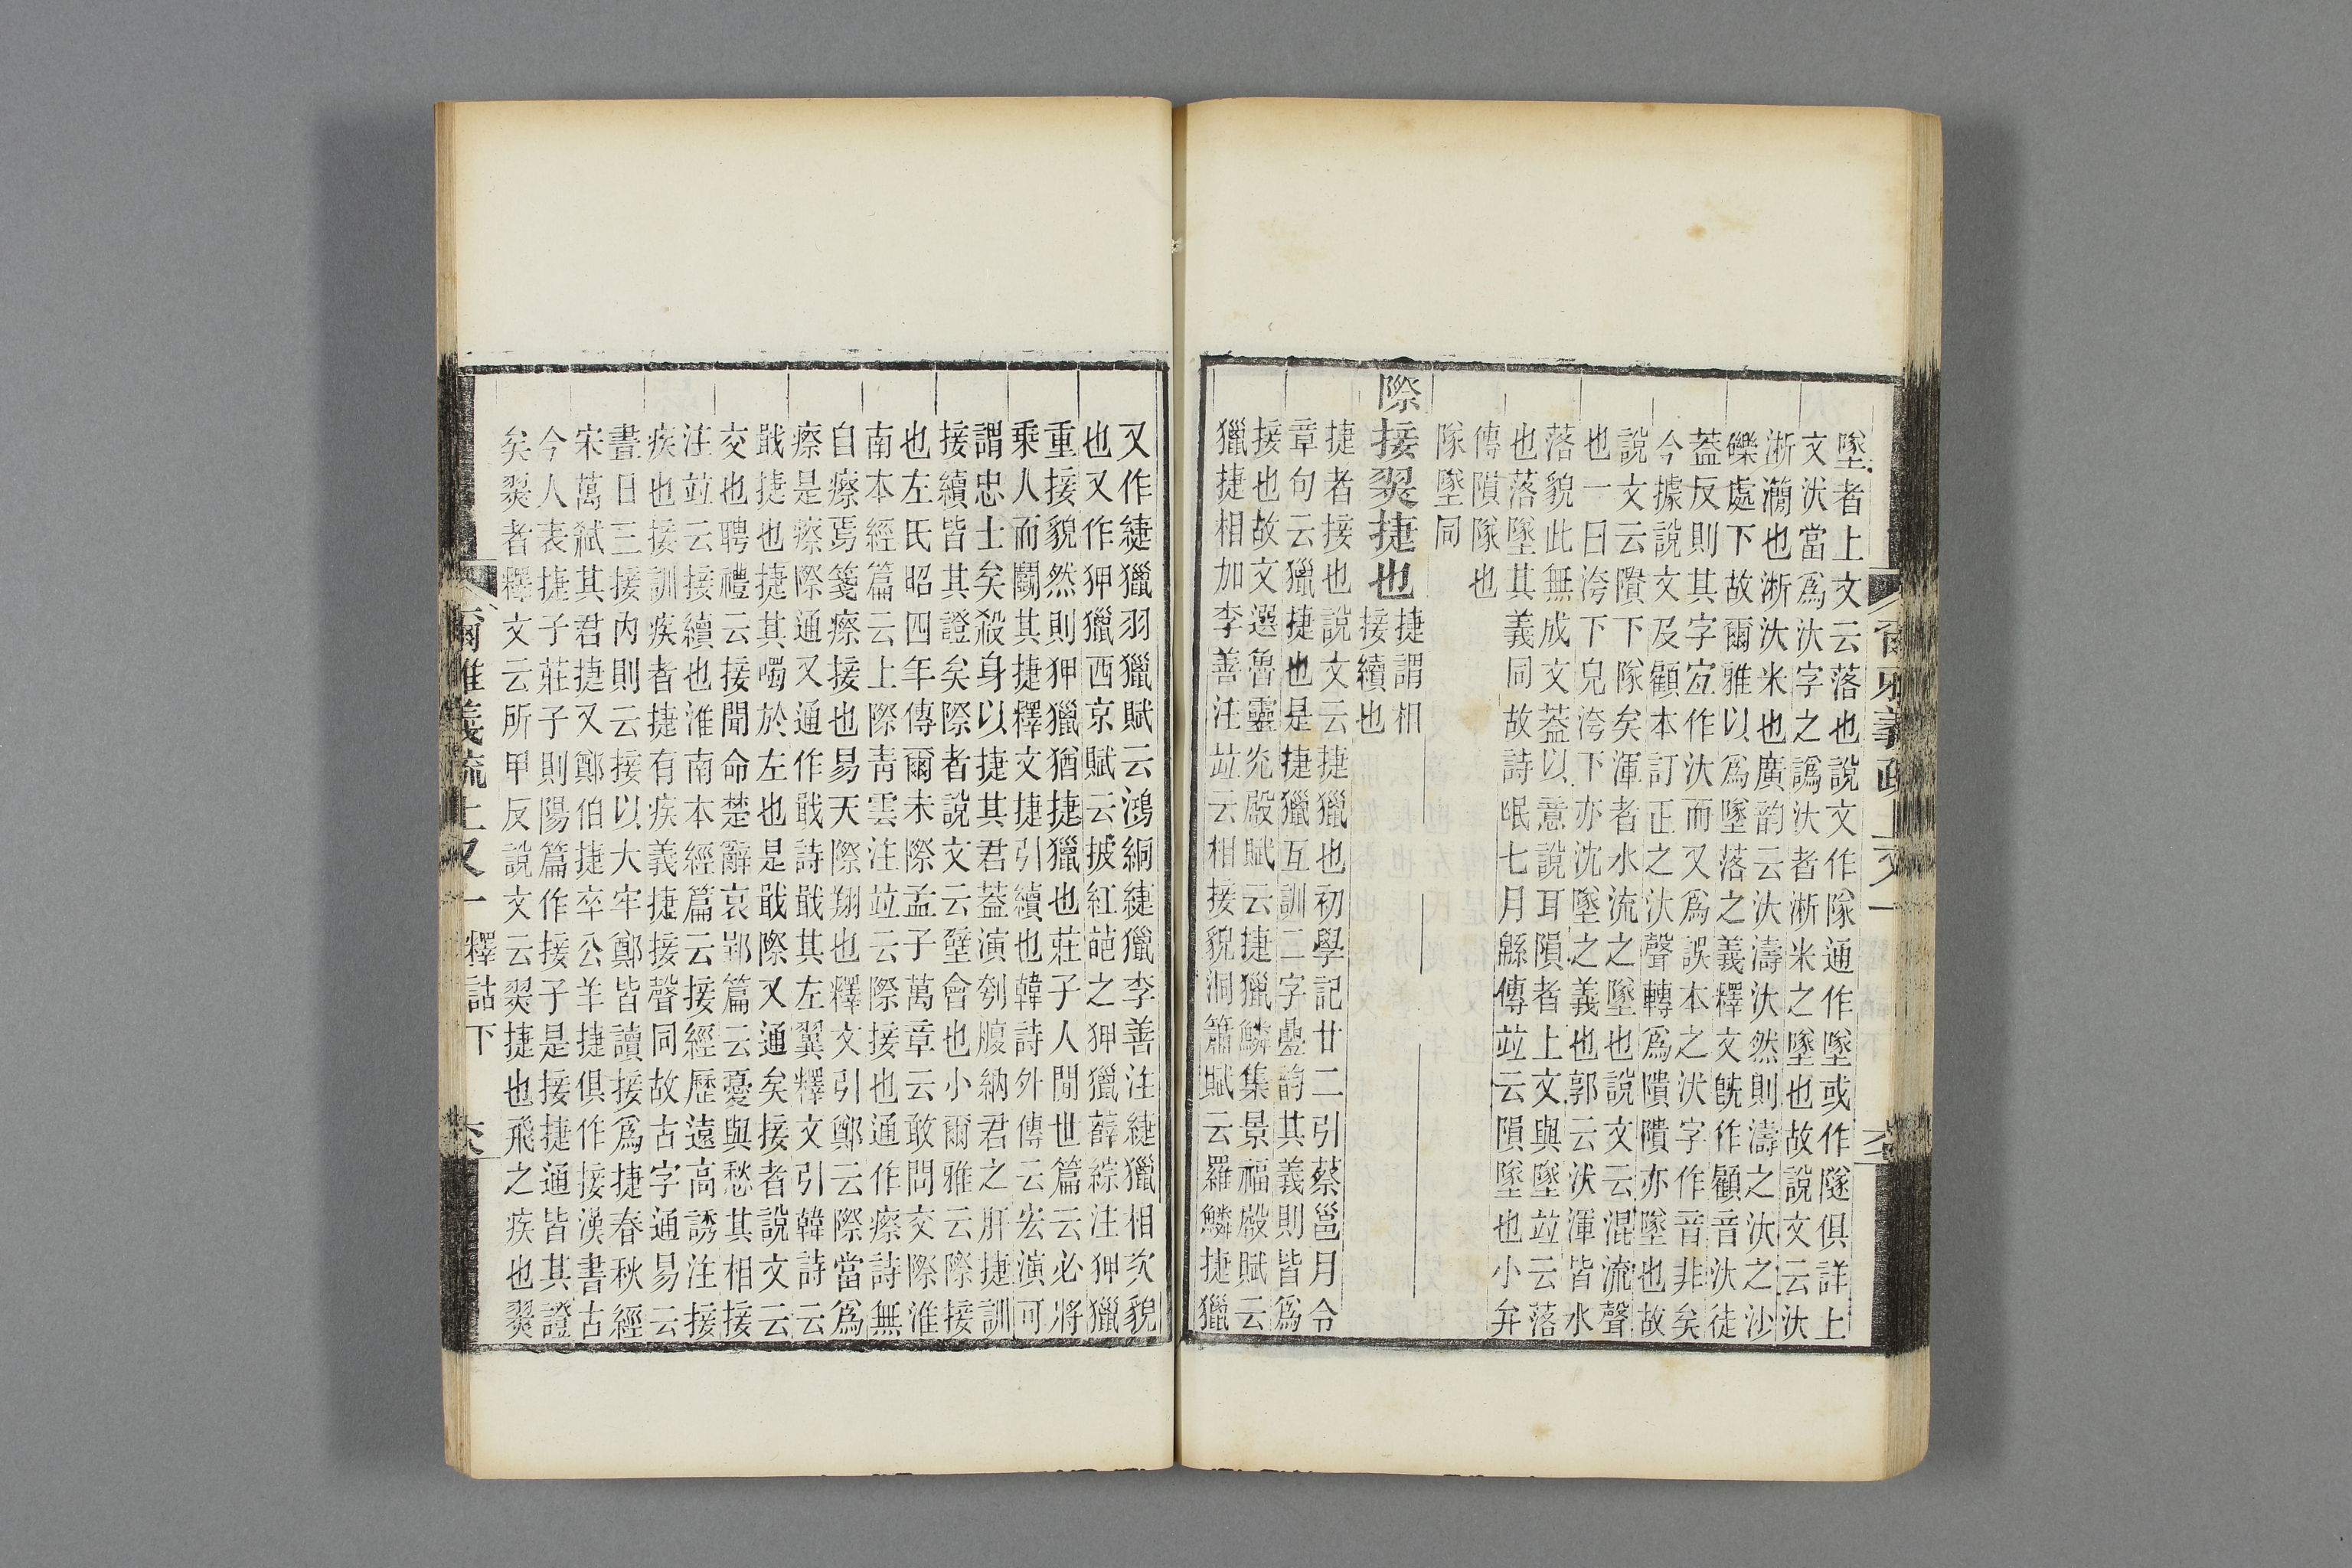 墜者上文云落也說文作隊通作墜或作隧俱詳上
文汱當爲汏字之譌汏者淅米之墜也故說文云汏
淅㶕也淅汏米也廣韵云汏濤汏然則濤之汏之沙
礫處下故爾雅以爲墜落之義釋文旣作顧音汏徒
葢反則其字宐作汏而又爲誤本之汱字作音非矣
今據說文及顧本訂正之汏聲轉爲隤隤亦墜也故
說文云隤下隊矣渾者水流之墜也說文云混流聲
也一曰洿下皃洿下亦沈墜之義也郭云汱渾皆水
落貌此無成文葢以意說耳隕者上文與墜竝云落
也落墜其義同故詩氓七月緜傳竝云隕墜也小弁
傳隕隊也
隊墜同
際接翜捷也
捷謂相
接續也
捷者接也說文云捷獵也初學記廿二引蔡邕月令
章句云獵捷也是捷獵互訓二字疊韵其義則皆爲
接也故文選魯靈光殿賦云捷獵鱗集景福殿賦云
獵捷相加李善注竝云相接貌洞簫賦云羅鱗捷獵
又作緁獵羽獵賦云鴻絧緁獵李善注緁獵相次貌
也又作狎獵西京賦云披紅葩之狎獵薛綜注狎獵
重接貌然則狎獵猶捷獵也莊子人閒世篇云必將
乗人而鬭其捷釋文捷引續也韓詩外傳云宏演可
謂忠士矣殺身以捷其君葢演刳腹納君之肝捷訓
接續皆其證矣際者說文云壁會也小爾雅云際接
也左氏昭四年傳爾未際孟子萬章云敢問交際淮
南本經篇云上際靑雲注竝云際接也通作瘵詩無
自瘵焉箋瘵接也易天際翔也釋文引鄭云際當爲
瘵是瘵際通又通作戢詩戢其左翼釋文引韓詩云
戢捷也捷其噣於左也是戢際又通矣接者說文云
交也聘禮云接聞命楚辭哀郢篇云憂與愁其相接
注竝云接續也淮南本經篇云接經歷遠高誘注接
疾也接訓疾者捷有疾義捷接聲同故古字通易云
晝日三接內則云接以大牢鄭皆讀接爲捷春秋經
宋萬弑其君捷又鄭伯捷卒公羊捷俱作接漢書古
今人表捷子莊子則陽篇作接子是接捷通皆其證
矣翜者釋文云所甲反說文云翜捷也飛之疾也翜
爾雅義疏上又一 釋詁下